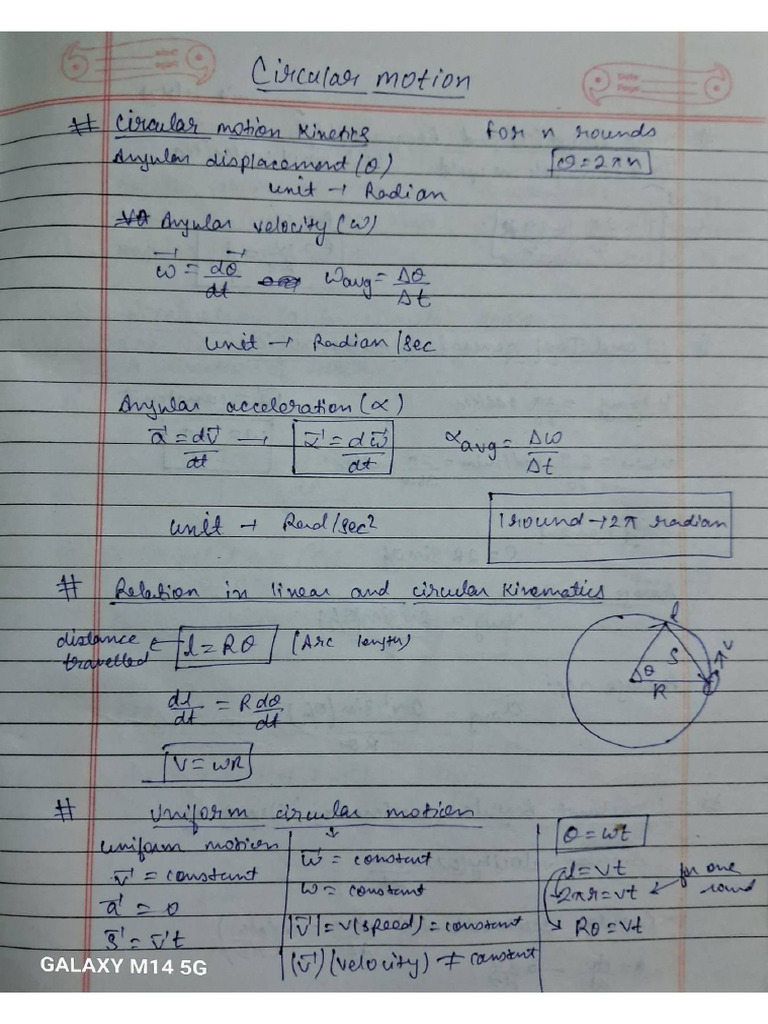 Circular motion
# Circular motion Kinetics for n rounds
Angular displacement (θ) θ = 2πn
unit → Radian
Angular velocity (ω)
ω⃗ = dθ⃗/dt ωavg = Δθ/Δt
unit → Radian/sec
Angular acceleration (α)
a⃗ = dv⃗/dt → α⃗ = dω⃗/dt αavg = Δω/Δt
unit → Rad/sec²
1 round → 2π radian
# Relation in linear and circular Kinematics
distance travelled ← l = Rθ (Arc length)
l
S
v
θ
R
dl/dt = R dθ/dt
V = ωR
# Uniform circular motion
uniform motion
v⃗ = constant
a⃗ = 0
s⃗ = v⃗t
↓
ω⃗ = constant
ω = constant
|v⃗| = v(speed) = constant
(v⃗) (velocity) ≠ constant
θ = ωt
d = vt
2πr = vt ← for one round
→ Rθ = vt
GALAXY M14 5G